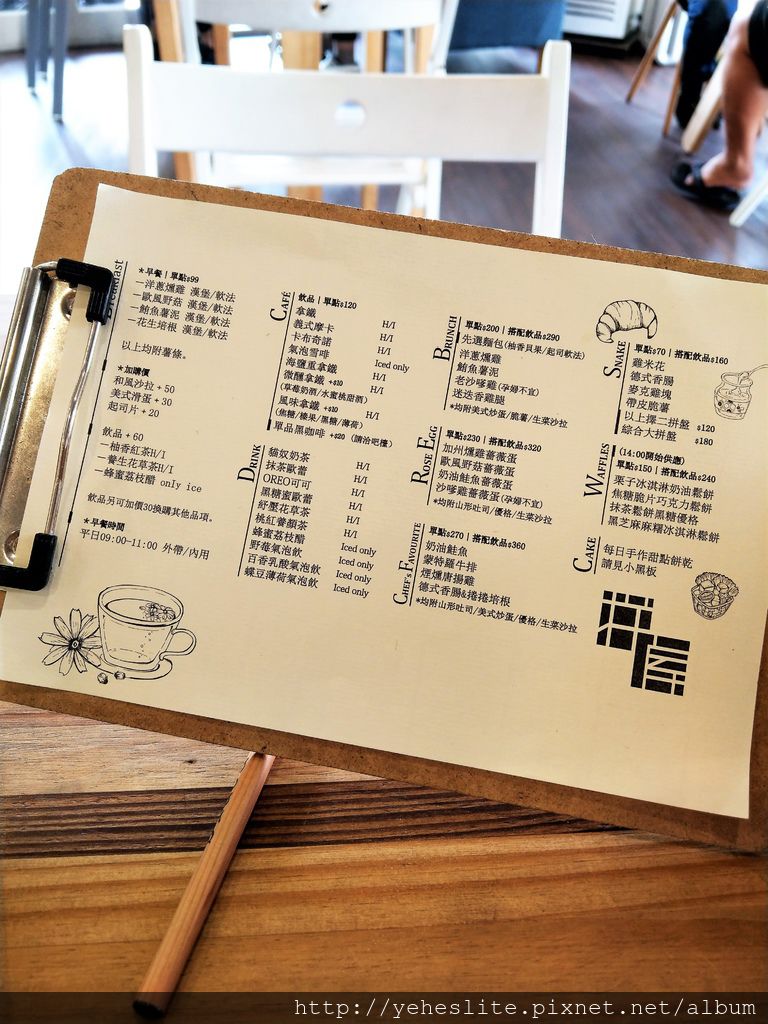 Breakfast
*早餐 | 單點$99
—洋蔥燻雞 漢堡/軟法
—歐風野菇 漢堡/軟法
—鮪魚薯泥 漢堡/軟法
—花生培根 漢堡/軟法
以上均附薯條。
*加購價
和風沙拉+50
美式滑蛋+30
起司片+20
飲品+60
—柚香紅茶H/I
—養生花草茶H/I
—蜂蜜荔枝醋 only ice
飲品另可加價30換購其他品項。
*早餐時間
平日09:00-11:00 外帶/內用
CAFÉ
飲品 | 單點$120
拿鐵 H/I
義式摩卡 H/I
卡布奇諾 H/I
氣泡雪啡 Iced only
海鹽重拿鐵 H/I
微醺拿鐵 +$10 H/I
(草莓奶酒/水蜜桃甜酒)
風味拿鐵 +$10 H/I
(焦糖/榛果/黑糖/薄荷)
單品黑咖啡 +$20 (請洽吧檯)
DRINK
貓奴奶茶 H/I
抹茶歐蕾 H/I
OREO可可 H/I
黑糖蜜歐蕾 H/I
紓壓花草茶 H/I
桃紅養顏茶 H/I
蜂蜜荔枝醋 Iced only
野莓氣泡飲 Iced only
百香乳酸氣泡飲 Iced only
蝶豆薄荷氣泡飲 Iced only
BRUNCH
單點$200 | 搭配飲品$290
先選麵包(柚香貝果/起司軟法)
洋蔥燻雞
鮪魚薯泥
老沙嗲雞(孕婦不宜)
迷迭香雞腿
*均附美式炒蛋/脆薯/生菜沙拉
ROSE EGG
單點$230 | 搭配飲品$320
加州燻雞薔薇蛋
歐風野菇薔薇蛋
奶油鮭魚薔薇蛋
沙嗲雞薔薇蛋(孕婦不宜)
*均附山形吐司/優格/生菜沙拉
CHEF'S FAVOURITE
單點$270 | 搭配飲品$360
奶油鮭魚
蒙特羅牛排
煙燻唐揚雞
德式香腸&捲捲培根
*均附山形吐司/美式炒蛋/優格/生菜沙拉
SNAKE
單點$70 | 搭配飲品$160
雞米花
德式香腸
麥克雞塊
帶皮脆薯
以上擇二拼盤 $120
綜合大拼盤 $180
WAFFLES
(14:00開始供應)
單點$150 | 搭配飲品$240
栗子冰淇淋奶油鬆餅
焦糖脆片巧克力鬆餅
抹茶鬆餅黑糖優格
黑芝麻麻糬冰淇淋鬆餅
CAKE
每日手作甜點餅乾
請見小黑板
http://yeheslite.pixnet.net/album